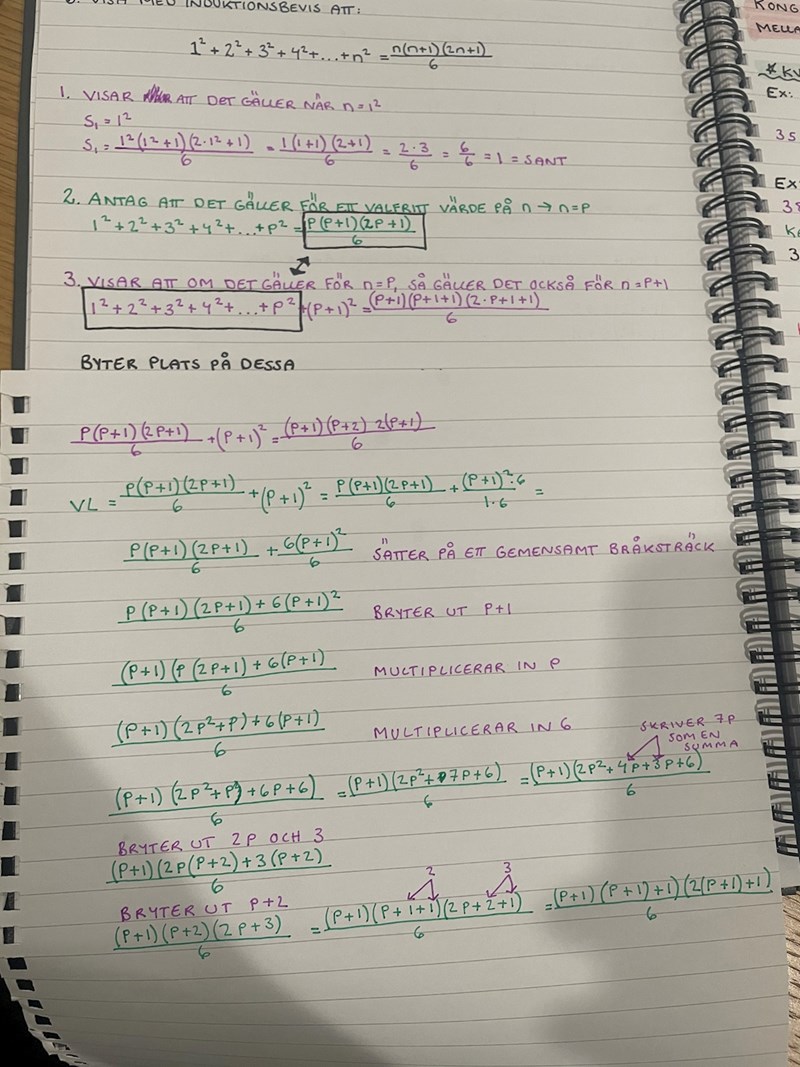 VISA MED INDUKTIONSBEVIS ATT:
1² + 2² + 3² + 4² + ... + n² = n(n+1)(2n+1) / 6
1. VISAR ATT DET GÄLLER NÄR n = 1²
S₁ = 1²
S₁ = 1²(1²+1)(2·1²+1) / 6 = 1(1+1)(2+1) / 6 = 2·3 / 6 = 6/6 = 1 = SANT
2. ANTAG ATT DET GÄLLER FÖR ETT VALFRITT VÄRDE PÅ n → n=P
1² + 2² + 3² + 4² + ... + P² = P(P+1)(2P+1) / 6
3. VISAR ATT OM DET GÄLLER FÖR n=P, SÅ GÄLLER DET OCKSÅ FÖR n=P+1
1² + 2² + 3² + 4² + ... + P² + (P+1)² = (P+1)(P+1+1)(2·P+1+1) / 6
BYTER PLATS PÅ DESSA
P(P+1)(2P+1) / 6 + (P+1)² = (P+1)(P+2) 2(P+1) / 6
VL = P(P+1)(2P+1) / 6 + (P+1)² = P(P+1)(2P+1) / 6 + (P+1)²·6 / 1·6 =
P(P+1)(2P+1) / 6 + 6(P+1)² / 6 SÄTTER PÅ ETT GEMENSAMT BRÅKSTRÄCK
P(P+1)(2P+1) + 6(P+1)² / 6 BRYTER UT P+1
(P+1)(P(2P+1) + 6(P+1) / 6 MULTIPLICERAR IN P
(P+1)(2P²+P) + 6(P+1) / 6 MULTIPLICERAR IN 6
SKRIVER 7P
SOM EN
SUMMA
(P+1)(2P²+P) + 6P+6) / 6 = (P+1)(2P²+7P+6) / 6 = (P+1)(2P²+4P+3P+6) / 6
BRYTER UT 2P OCH 3
(P+1)(2P(P+2)+3(P+2) / 6
BRYTER UT P+2
2 3
(P+1)(P+2)(2P+3) / 6 = (P+1)(P+1+1)(2P+2+1) / 6 = (P+1)(P+1)+1)(2(P+1)+1) / 6
KONG
MELLA
*KV
Ex:
35
Ex
38
3